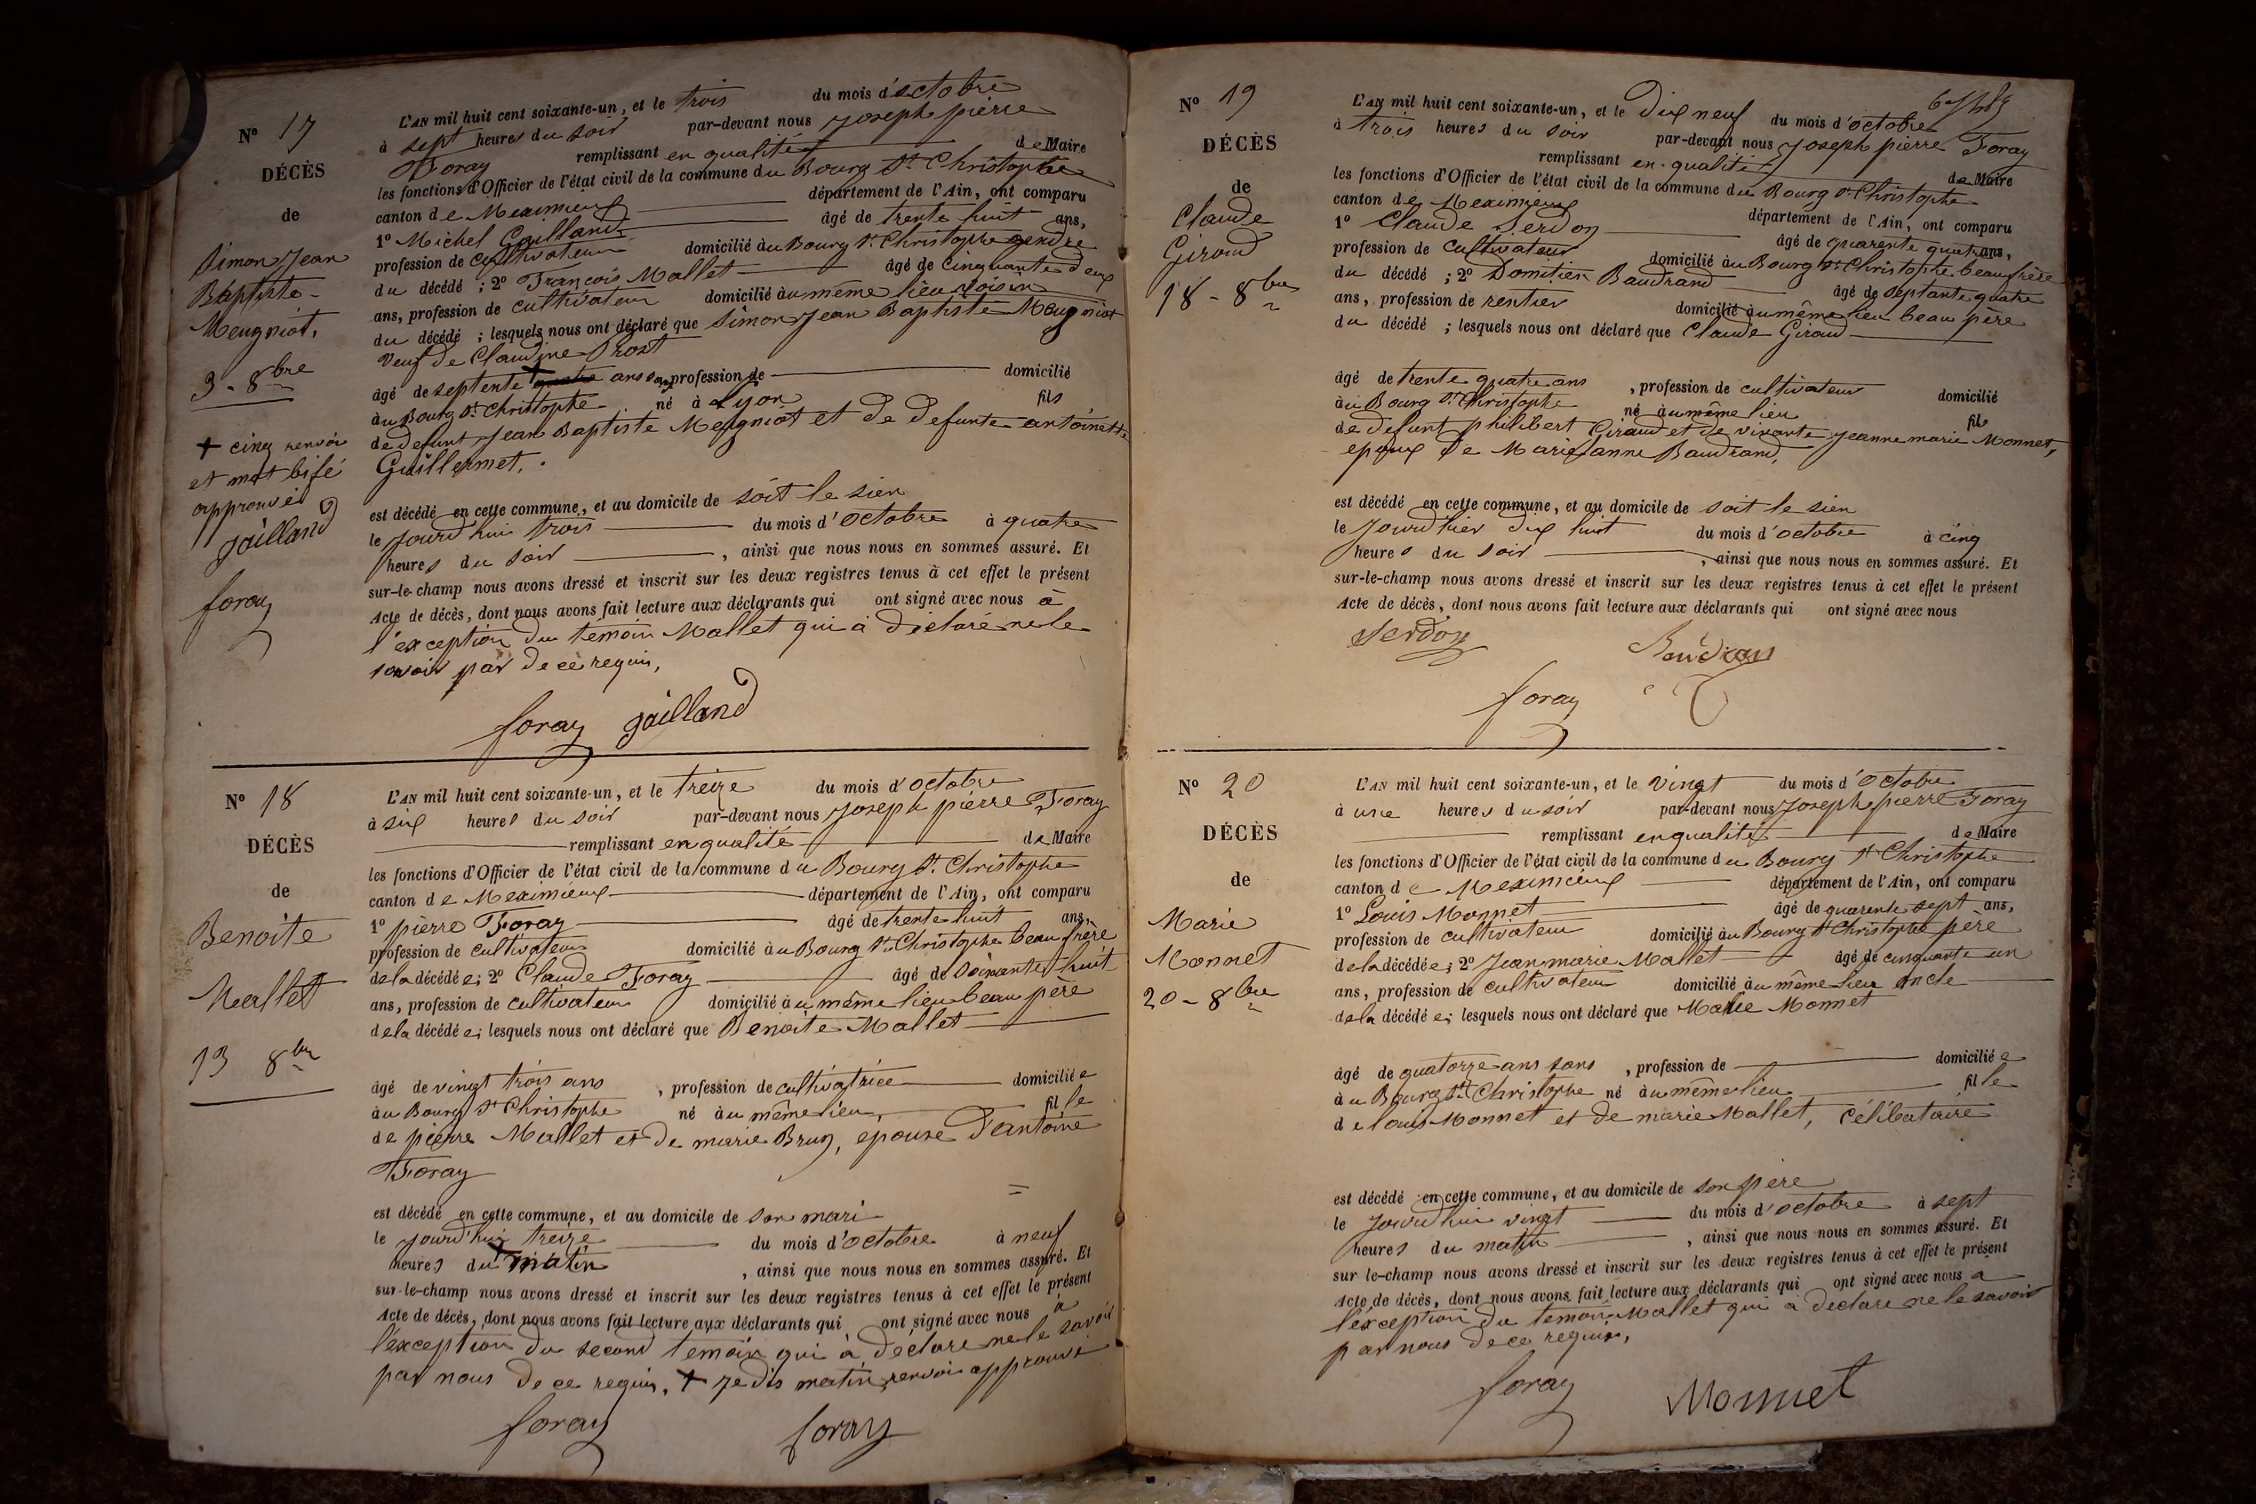 N° 17
DÉCÈS
de
Simon Jean
Baptiste
Meugniot,
3 - 8bre
+ cinq renvoi
et mot bifé
approuvé
gailland
foray
L'AN mil huit cent soixante-un, et le trois du mois d'octobre
à sept heures du soir par-devant nous Joseph pierre
Foray remplissant en qualité de Maire
les fonctions d'Officier de l'état civil de la commune du Bourg St. Christophe
canton de Meximieux département de l'Ain, ont comparu
1° Michel Gailland âgé de trente huit ans,
profession de cultivateur domicilié au Bourg St. Christophe gendre
du décédé ; 2° François Mallet âgé de cinquante deux
ans, profession de cultivateur domicilié au même lieu voisin
du décédé ; lesquels nous ont déclaré que Simon Jean Baptiste Meugniot
Veuf de Claudine Prost
âgé de septente + quatre ans sans profession de domicilié
au Bourg St. Christophe né à Lyon fils
de defunt Jean Baptiste Meugniot et de defunte antoinette
Guillermet,.
est décédé en cette commune, et au domicile de soit le sien
le jourd'hui trois du mois d'octobre à quatre
heures du soir , ainsi que nous nous en sommes assuré. Et
sur-le-champ nous avons dressé et inscrit sur les deux registres tenus à cet effet le présent
Acte de décès, dont nous avons fait lecture aux déclarants qui ont signé avec nous à
l'exception du témoin Mallet qui à déclaré ne le
savoir par de ce requis,
foray gailland
N° 18
DÉCÈS
de
Benoite
Mallet
13 8bre
L'AN mil huit cent soixante-un, et le treize du mois d'octobre
à six heures du soir par-devant nous Joseph pierre Foray
remplissant en qualité de Maire
les fonctions d'Officier de l'état civil de la commune du Bourg St. Christophe
canton de Meximieux département de l'Ain, ont comparu
1° pierre Foray âgé de trente huit ans,
profession de cultivateur domicilié au Bourg St. Christophe beau frère
de la décédée; 2° Claude Foray âgé de soixante huit
ans, profession de cultivateur domicilié au même lieu beau père
de la décédée; lesquels nous ont déclaré que Benoite Mallet
âgé de vingt trois ans , profession de cultivatrice domiciliée
au Bourg St Christophe né au même lieu, fille
de pierre Mallet et de marie Brun, epouse d'antoine
Foray
est décédé en cette commune, et au domicile de son mari
le jourd'hui treize du mois d'octobre à neuf
heures du + matin , ainsi que nous nous en sommes assuré. Et
sur-le-champ nous avons dressé et inscrit sur les deux registres tenus à cet effet le présent
Acte de décès, dont nous avons fait lecture aux déclarants qui ont signé avec nous à
l'exception du second temoin qui à déclare ne le savoir
par nous de ce requis, + je dis matin renvoi approuvé
foray foray
N° 19
DÉCÈS
de
Claude
Giroud
18 - 8bre
L'AN mil huit cent soixante-un, et le Dix neuf du mois d'octobre
à trois heures du soir par-devant nous Joseph pierre Foray
remplissant en qualité de Maire
les fonctions d'Officier de l'état civil de la commune du Bourg St. Christophe
canton de Meximieux département de l'Ain, ont comparu
1° Claude Serdon âgé de quarente quatre ans,
profession de cultivateur domicilié au Bourg St. Christophe beau frère
du décédé ; 2° Domitien Baudrand âgé de septante quatre
ans, profession de rentier domicilié au même lieu beau père
du décédé ; lesquels nous ont déclaré que Claude Giroud
âgé de trente quatre ans , profession de cultivateur domicilié
au Bourg St. Christophe né au même lieu fils
de defunt philibert Giroud et de vivante Jeanne marie Monnet,
epoux de Marie anne Baudrand,
est décédé en cette commune, et au domicile de soit le sien
le jourd'hier dix huit du mois d'octobre à cinq
heures du soir , ainsi que nous nous en sommes assuré. Et
sur-le-champ nous avons dressé et inscrit sur les deux registres tenus à cet effet le présent
Acte de décès, dont nous avons fait lecture aux déclarants qui ont signé avec nous
Serdon
foray
N° 20
DÉCÈS
de
Marie
Monnet
20 - 8bre
L'AN mil huit cent soixante-un, et le vingt du mois d'octobre
à une heures du soir par-devant nous Joseph pierre Foray
remplissant en qualité de Maire
les fonctions d'Officier de l'état civil de la commune du Bourg St Christophe
canton de Meximieux département de l'Ain, ont comparu
1° Louis Monnet âgé de quarente sept ans,
profession de cultivateur domicilié au Bourg St Christophe père
de la décédée; 2° Jean marie Mallet âgé de cinquante un
ans, profession de cultivateur domicilié au même lieu oncle
de la décédée; lesquels nous ont déclaré que Marie Monnet
âgé de quatorze ans sans , profession de domiciliée
au Bourg St Christophe né au même lieu fille
de louis Monnet et de marie Mallet, célibataire
est décédé en cette commune, et au domicile de son père
le jourd'hui vingt du mois d'octobre à sept
heures du matin , ainsi que nous nous en sommes assuré. Et
sur le-champ nous avons dressé et inscrit sur les deux registres tenus à cet effet le présent
Acte de décès, dont nous avons fait lecture aux déclarants qui ont signé avec nous à
l'exception du temoin Mallet qui a declare ne le savoir
par nous de ce requis,
foray Monnet